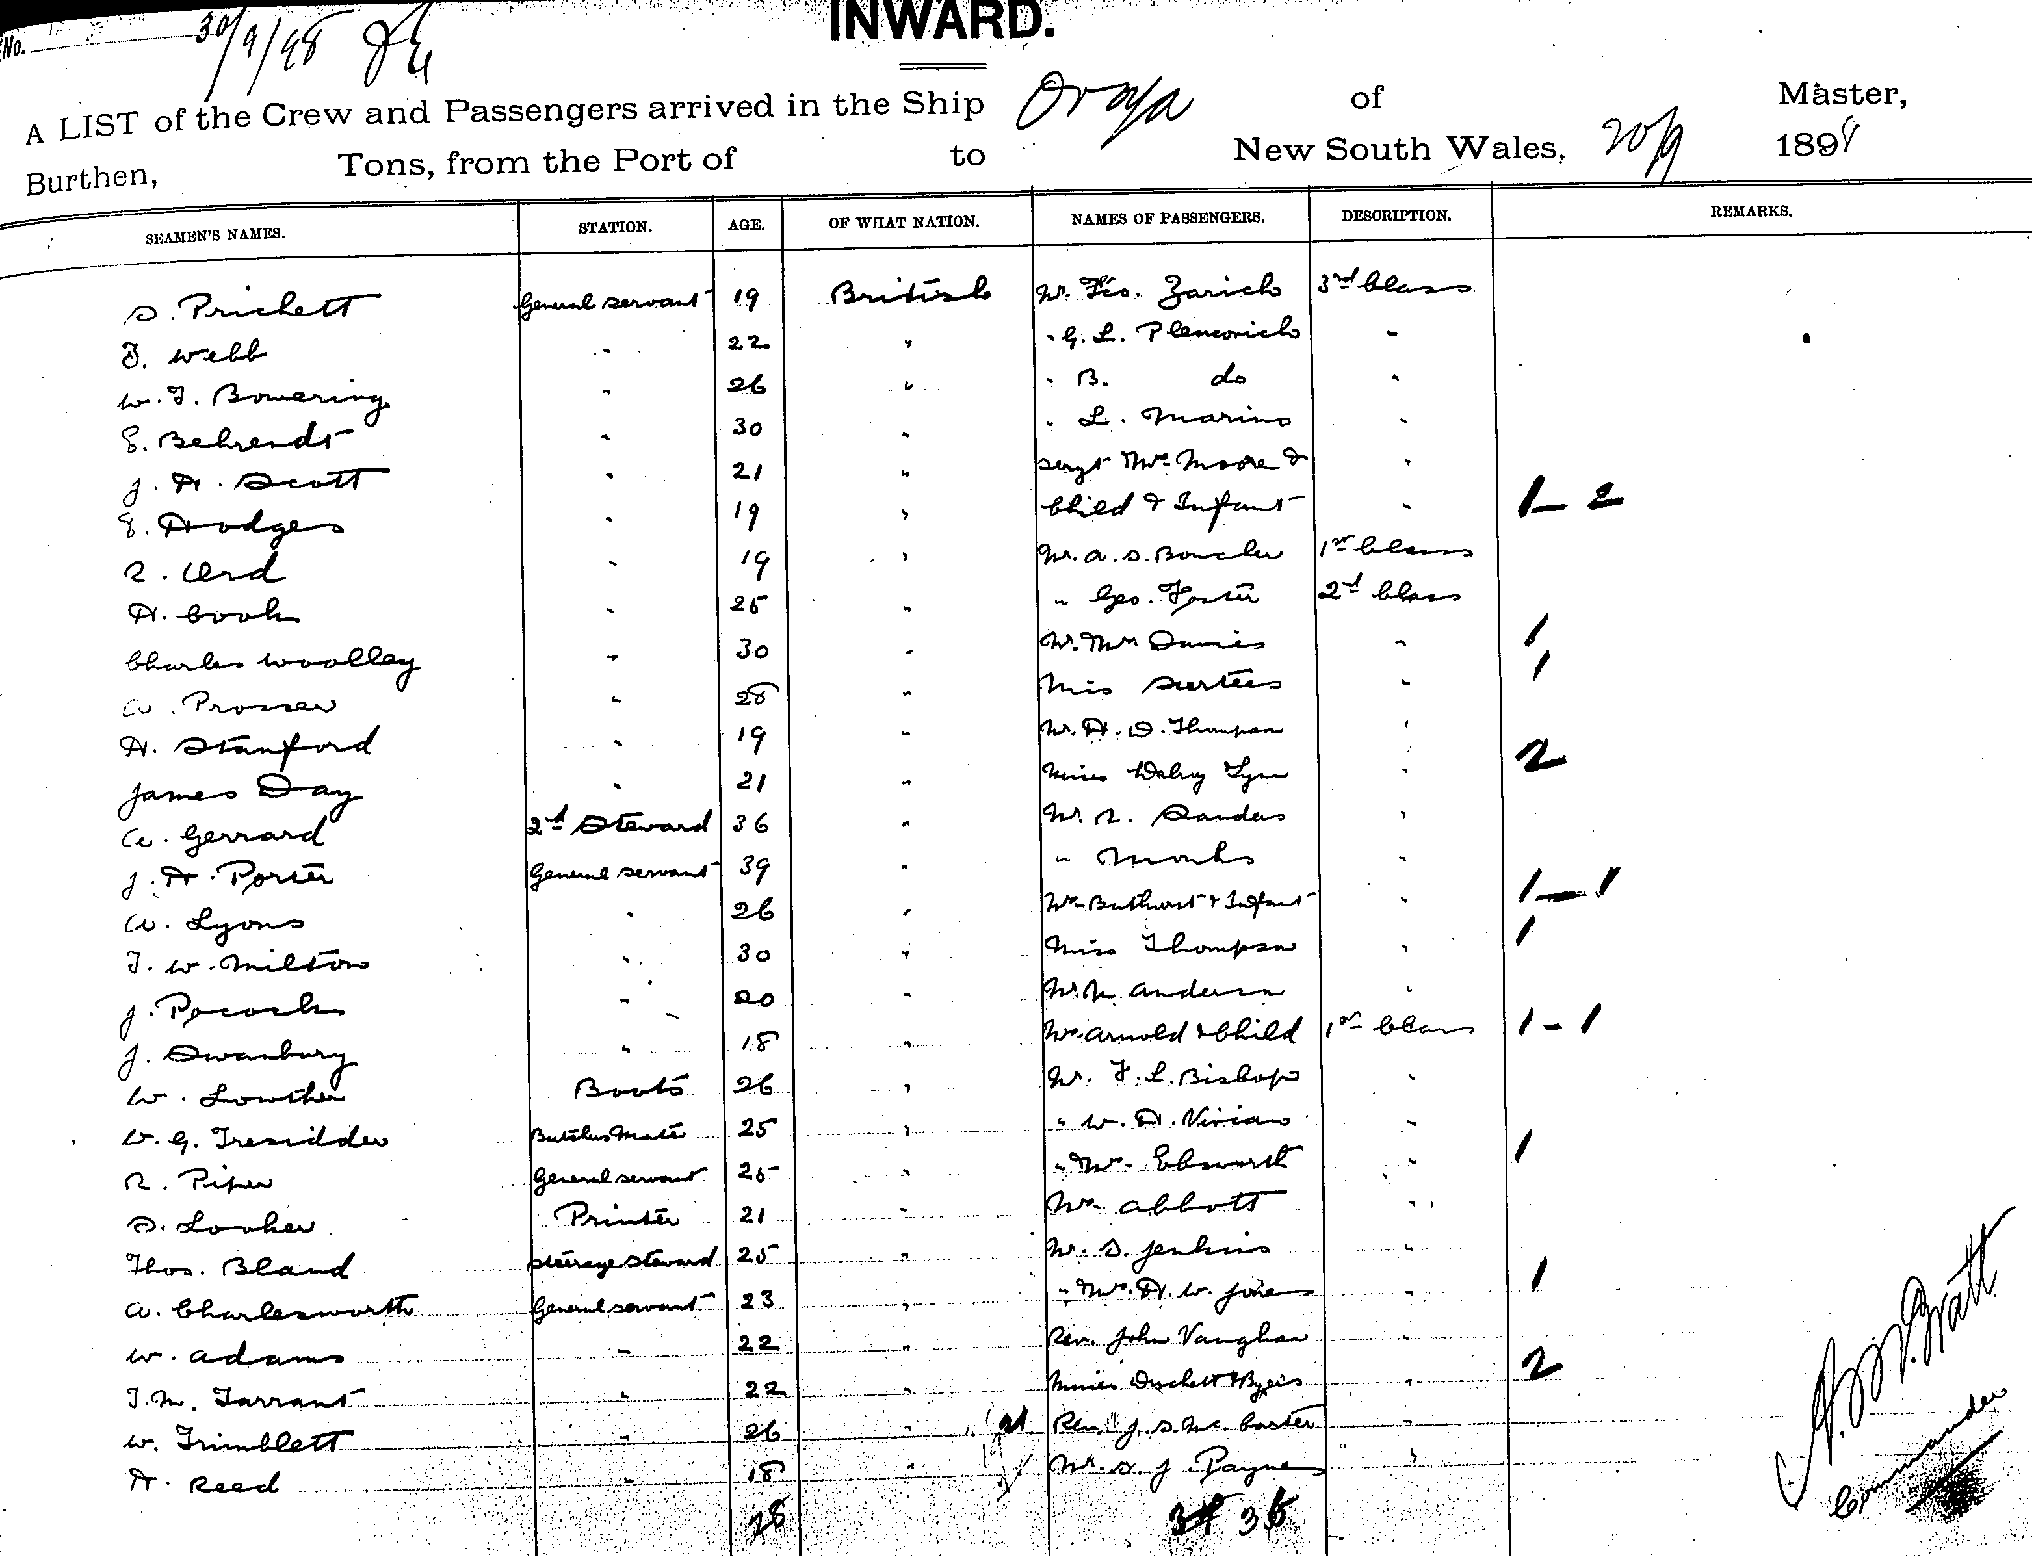 INWARD.
No. 30/9/98
A LIST of the Crew and Passengers arrived in the Ship Oroya of Master,
Burthen, Tons, from the Port of to New South Wales, 20/9 1898
SEAMEN'S NAMES. STATION. AGE. OF WHAT NATION. NAMES OF PASSENGERS. DESCRIPTION. REMARKS.
S. Prichett General servant 19 British Mr. Zarich 3rd Class
F. Webb " 22 " " G. L. "
W. F. Bowering " 26 " " B. do "
E. Behrendt " 30 " " L. Marino "
J. H. Scott " 21 " Sergt Mrs Moore & "
E. Hodges " 19 " Child & Infant " 1 - 2
R. Ord " 19 " Mr. A. S. 1st Class
H. Cook " 25 " " Geo. Foster 2nd Class
Charles Woolley " 30 " Mr. Mrs Davies " 1
A. Prosser " 28 " Miss Surtees " 1
H. Stanford " 19 " Mr. H. D. Thompson "
James Day " 21 " Misses " 2
A. Gerrard 2nd Steward 36 " Mr. R. Sandes "
J. H. Porter General servant 39 " " Monks "
A. Lyons " 26 " Mrs Bathurst & Infant " 1 - 1
F. W. Milton " 30 " Miss Thompson " 1
J. Pocock " 20 " Mr. Anderson "
J. Swanbury " 18 " Mrs Arnold & Child 1st Class 1 - 1
W. Lowther Boots 26 " Mr. F. L. Bishop "
W. G. Tresidder Butchers Mate 25 " " W. H. Vivian "
R. Piper General servant 25 " " Mrs Ebsworth " 1
S. Looker Printer 21 " Mr Abbott "
Thos. Bland Steerage Steward 25 " Mr. S. Jenkins "
A. Charlesworth General servant 23 " " Mrs. H. W. Jones " 1
W. Adams " 22 " Rev. John Vaughan "
F. M. Tarrant " 22 " Misses Duckett & Byers " 2
W. Trimblett " 26 " Rev. J. S. Mc "
H. Reed " 18 " Mr. S. J. Payne "
28 36
Commander